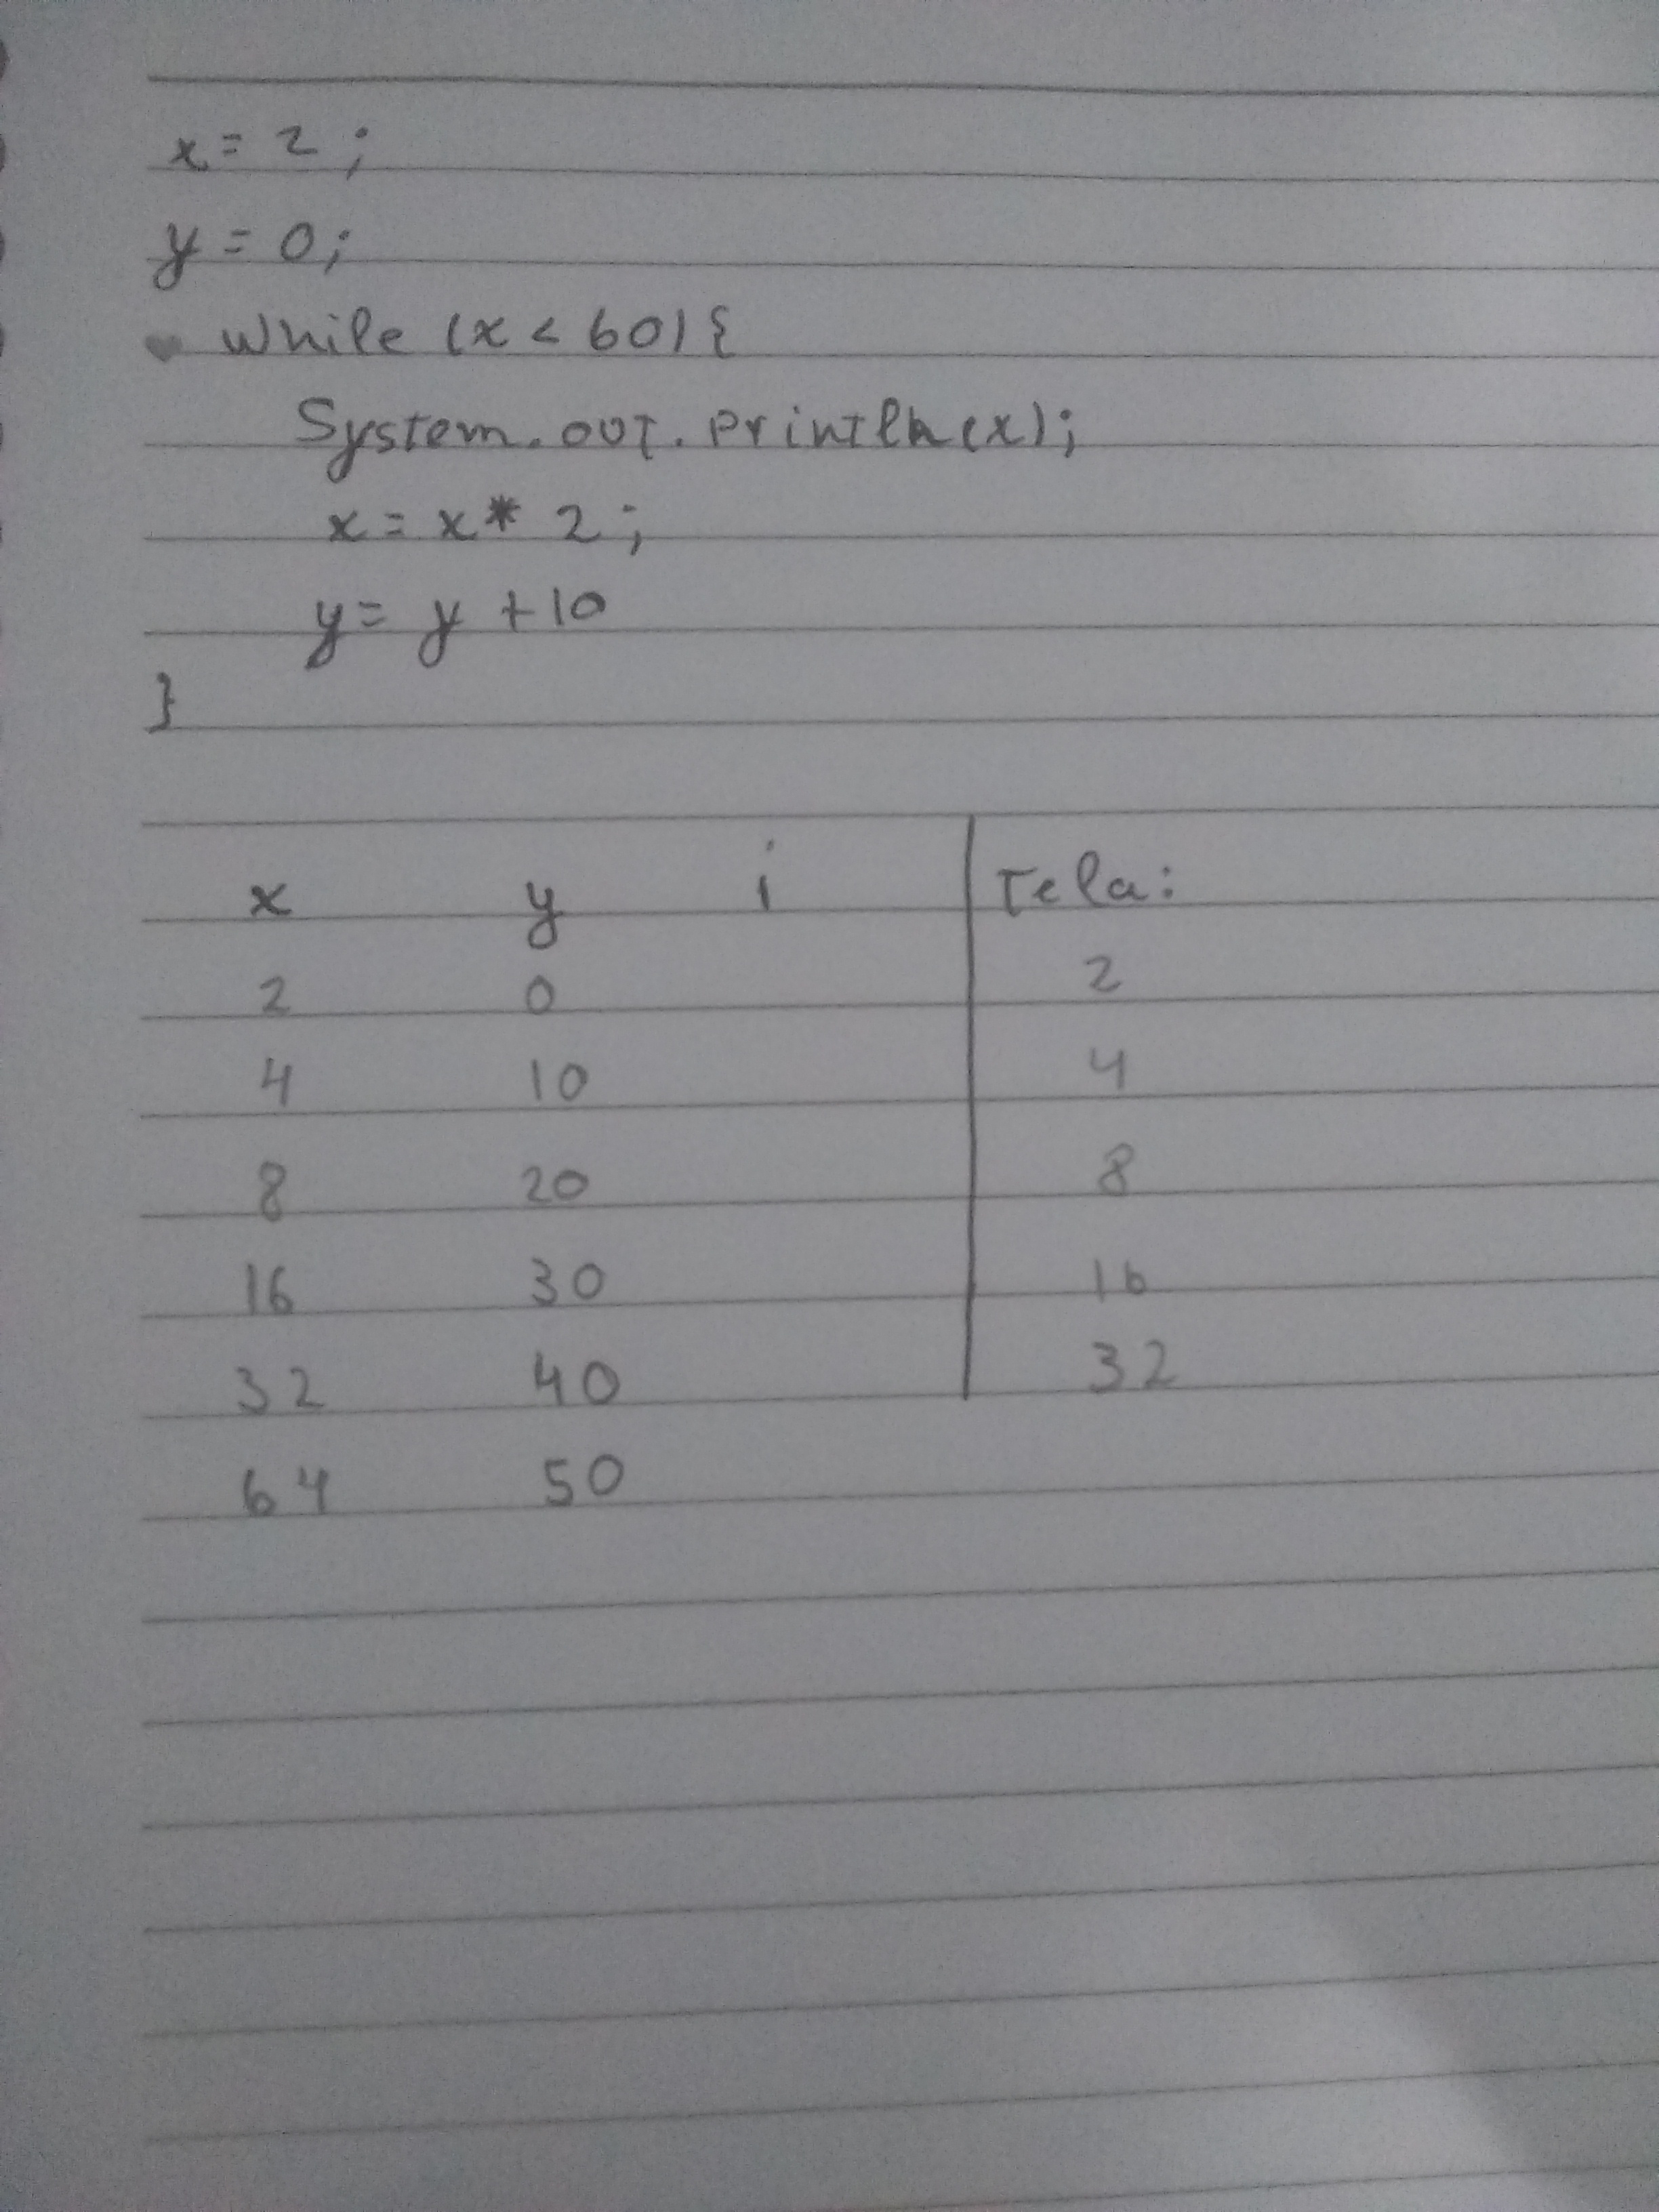 x = 2;
y = 0;
while (x < 60) {
System.out.println(x);
x = x * 2;
y = y + 10
}
x y i Tela:
2 0 2
4 10 4
8 20 8
16 30 16
32 40 32
64 50